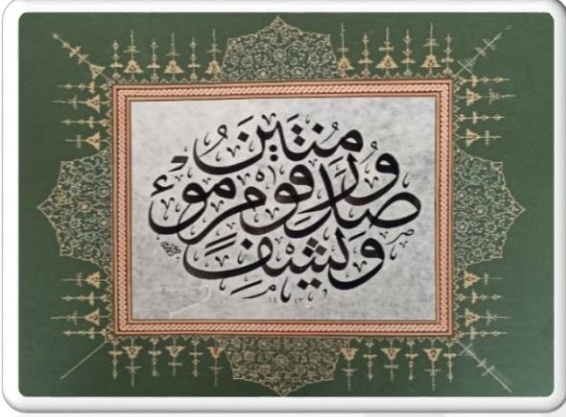 ويشف صدور قوم مؤمنين